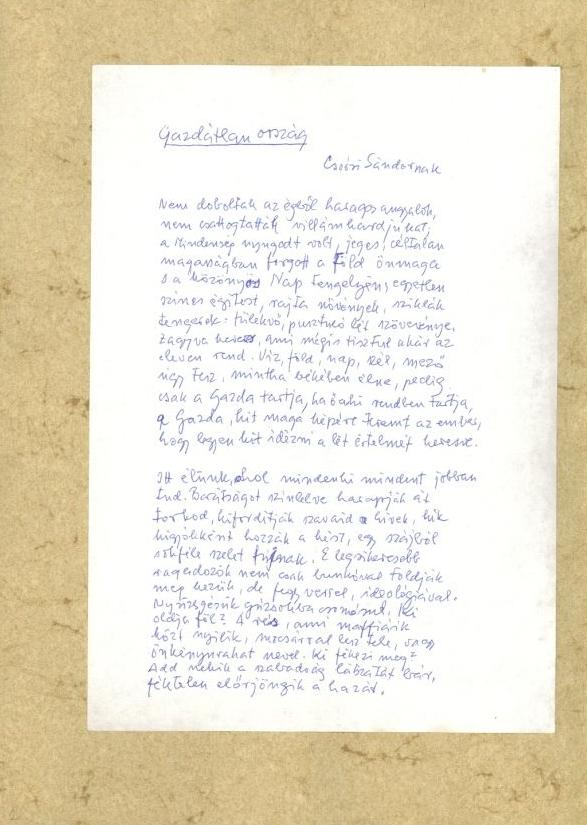 Gazdátlan ország
Csoóri Sándornak
Nem doboltak az égből haragos angyalok,
nem csattogtatták villámkardjukat,
a Mindenség nyugodt volt, jeges, céltalan
magasságban forgott a Föld önmaga
s a közönyös Nap tengelyén, egyetlen
színes égitest, rajta növények, sziklák
tengerek: tülekvő, pusztuló lét szövevénye.
Zagyva keres, ami mégis tisztul akár az
eleven rend. Víz, föld, nap, szél, mező
úgy tesz, mintha békében élne, pedig
csak a Gazda tartja, ha bárki rendben tartja,
a Gazda, kit maga képére teremt az ember,
hogy legyen kit idézni a lét értelmét keresve.
Itt élünk, ahol mindenki mindent jobban
tud. Barátságot színlelve harapják át
torkod, kiforditják szavaid a hívek, kik
kígyóként hozzák a kést, egy szájból
sokféle szelet fújnak. E legsikeresebb
ragadozók nem csak bunkóval toldják
meg kezük, de fegyverrel, ideológiával.
gúzsokba csomósul, ki
oldja föl? A rés, ami maffiáik
közt nyílik, mocsárral lesz tele, vagy
önkényurakat nevel. Ki fékezi meg?
Add nekik a szabadság lábzatát bár,
féktelen előrjöngik a hazát.